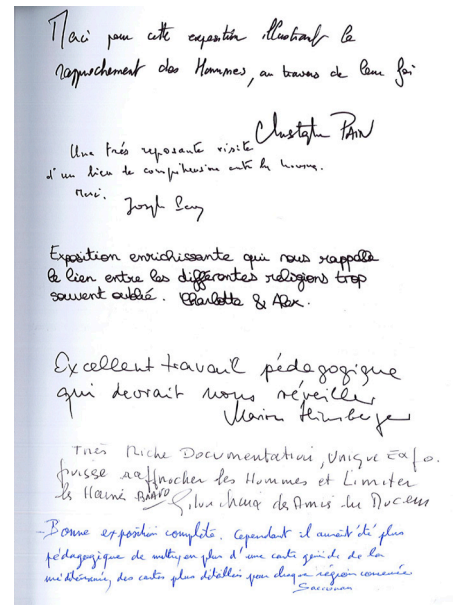 Merci pour cette exposition illustrant le
rapprochement des Hommes, au travers de leur foi
Christophe PAIN
Une très reposante visite
d'un lien de compréhension entre les hommes.
Merci.
Joseph
Exposition enrichissante qui nous rappelle
le lien entre les différentes religions trop
souvent oublié. Charlotte & Alex.
Excellent travail pédagogique
qui devrait nous réveiller
Marion
Très Riche Documentation, Unique Expo.
puisse rapprocher les Hommes et Limiter
la Haine BRAVO des Amis du Mucem
Bonne exposition complète. Cependant il aurait été plus
pédagogique de mettre en plus d'une carte générale de la
méditérranée, des cartes plus détaillées pour chaque région concernée